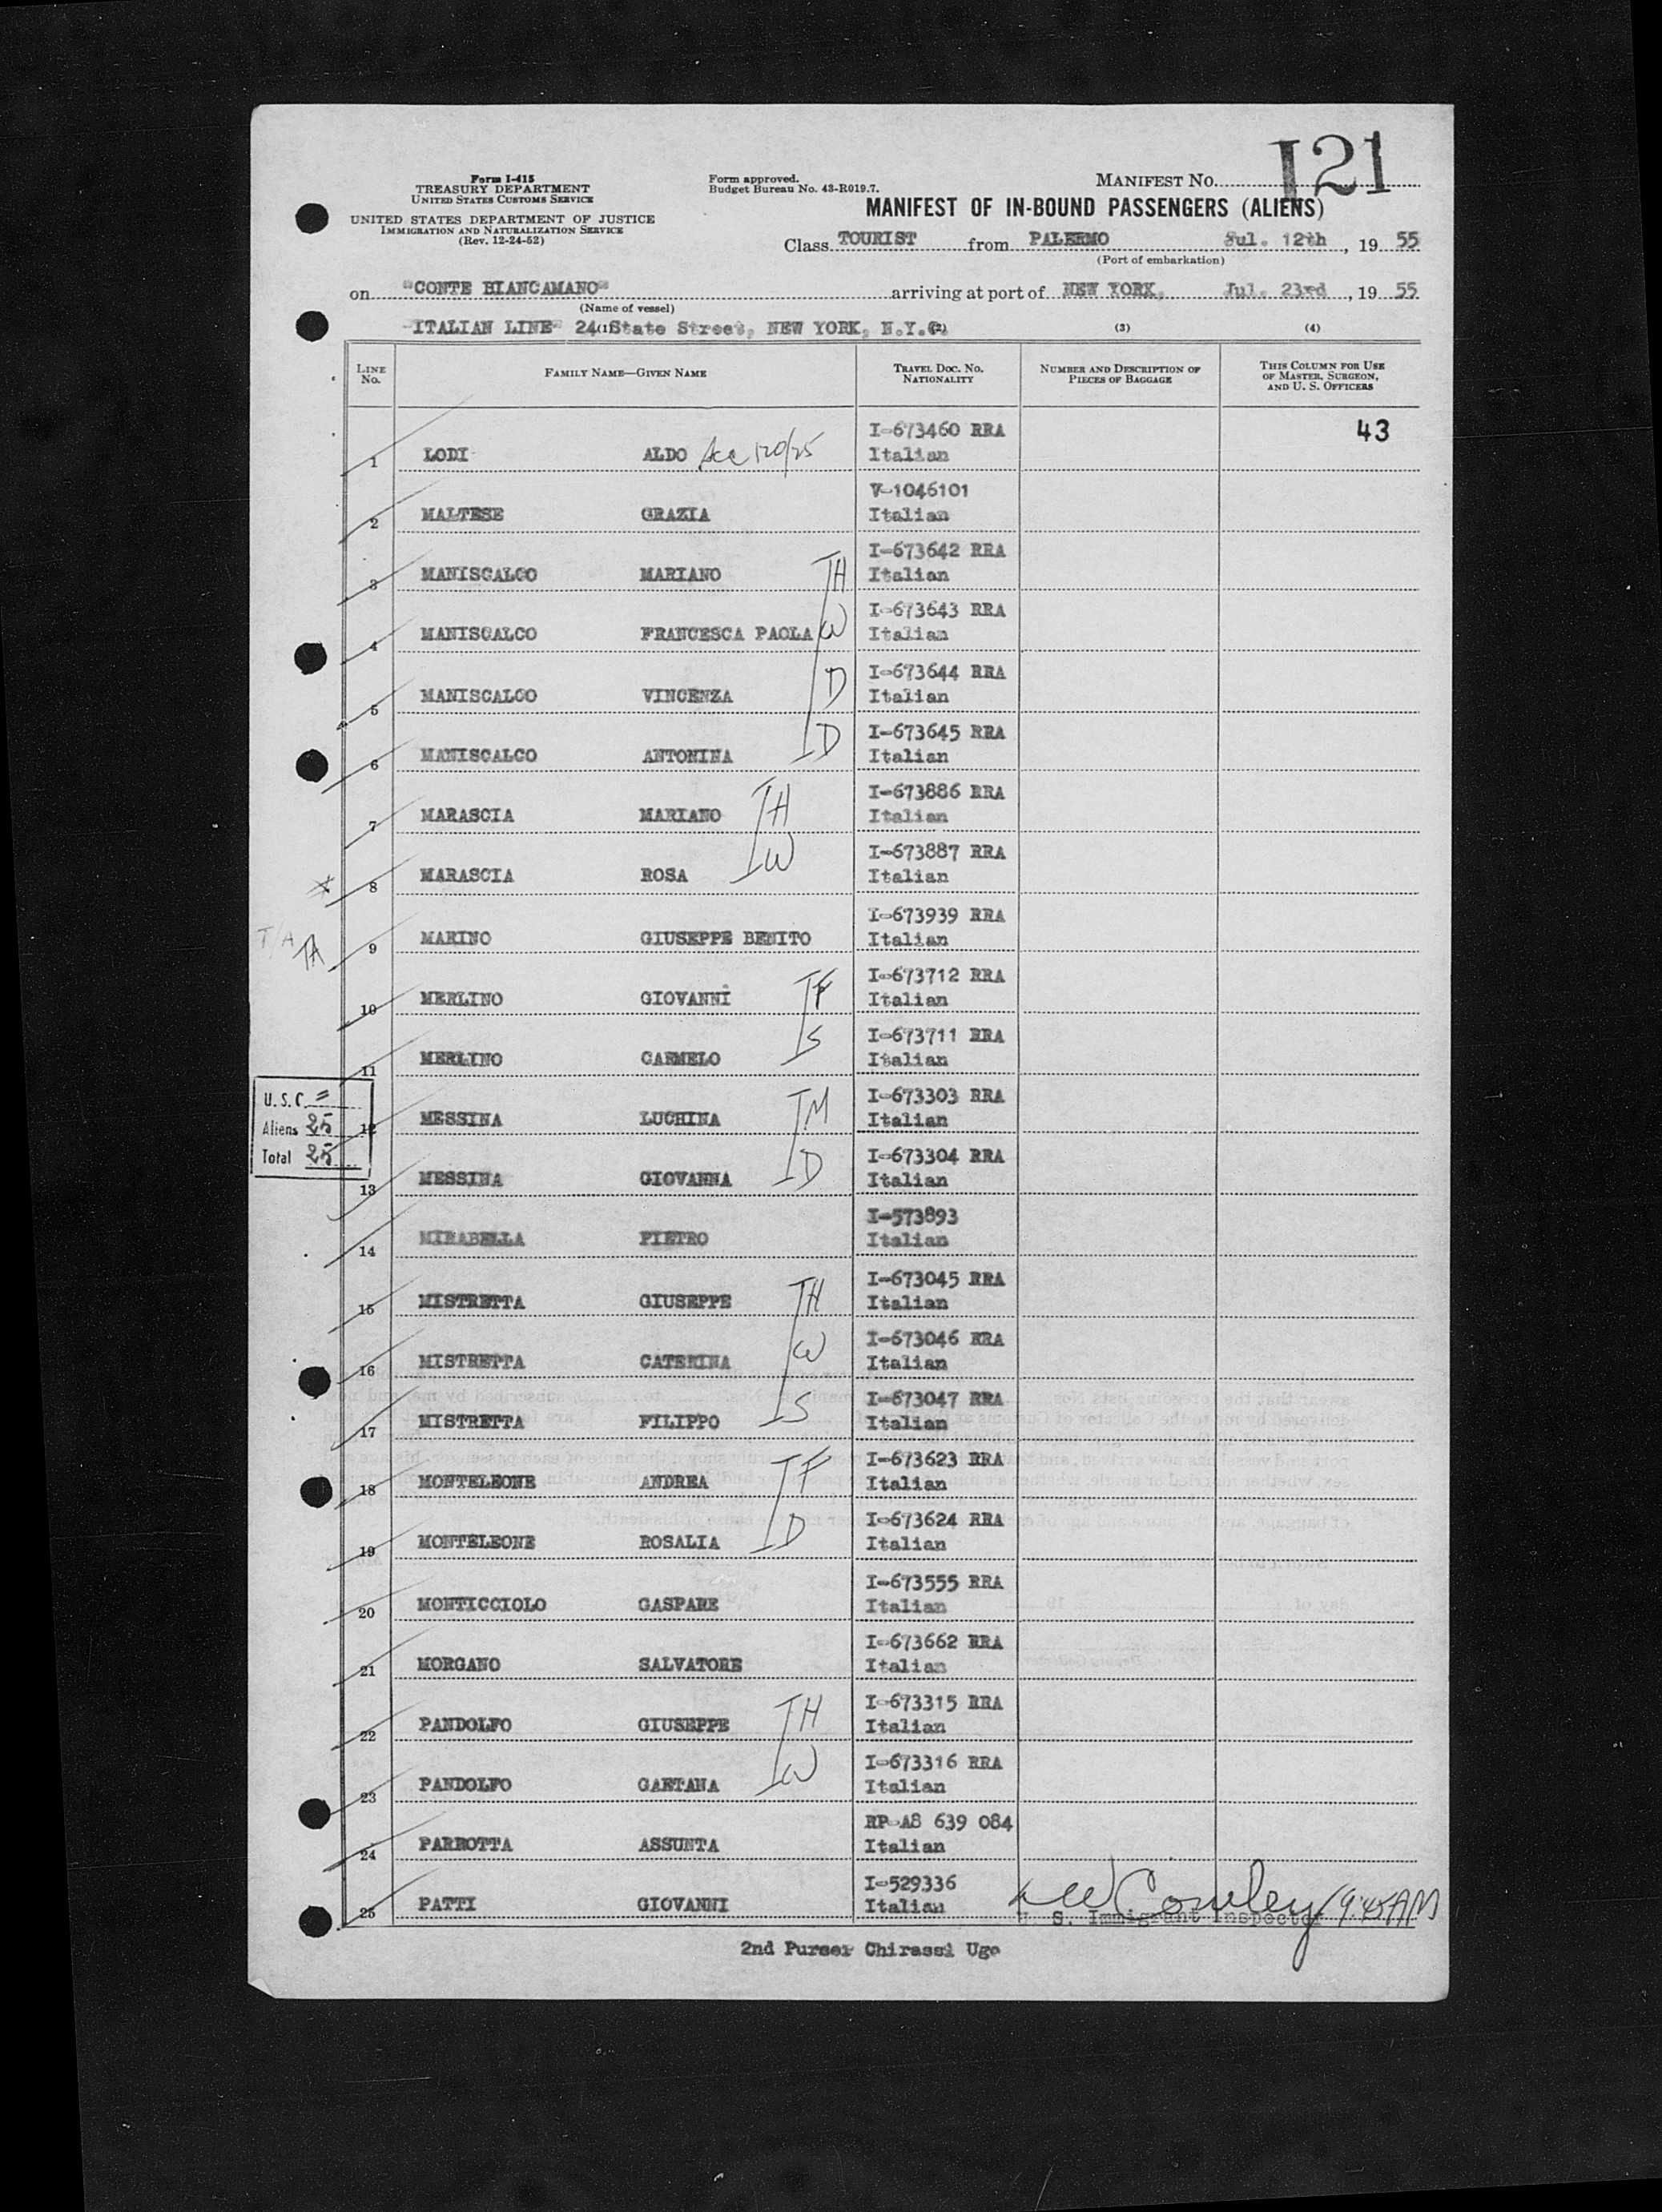 I21
Form I-415
TREASURY DEPARTMENT
UNITED STATES CUSTOMS SERVICE
UNITED STATES DEPARTMENT OF JUSTICE
IMMIGRATION AND NATURALIZATION SERVICE
(Rev. 12-24-52)
Form approved.
Budget Bureau No. 43-R019.7.
MANIFEST No.
MANIFEST OF IN-BOUND PASSENGERS (ALIENS)
Class TOURIST from PALERMO Jul. 12th, 19 55
(Port of embarkation)
on "CONTE BIANCAMANO" arriving at port of NEW YORK, Jul. 23rd, 19 55
(Name of vessel)
"ITALIAN LINE" 24 (1) State Street, NEW YORK, N.Y. (2) (3) (4)
LINE No. FAMILY NAME—GIVEN NAME TRAVEL DOC. NO. NATIONALITY NUMBER AND DESCRIPTION OF PIECES OF BAGGAGE THIS COLUMN FOR USE OF MASTER, SURGEON, AND U. S. OFFICERS
I-673460 RRA 43
1 LODI ALDO Italian
V-1046101
2 MALTESE GRAZIA Italian
I-673642 RRA
3 MANISCALCO MARIANO H Italian
I-673643 RRA
4 MANISCALCO FRANCESCA PAOLA W Italian
I-673644 RRA
5 MANISCALCO VINCENZA D Italian
I-673645 RRA
6 MANISCALCO ANTONINA D Italian
I-673886 RRA
7 MARASCIA MARIANO H Italian
I-673887 RRA
8 MARASCIA ROSA W Italian
I-673939 RRA
T/A TA 9 MARINO GIUSEPPE BENITO Italian
I-673712 RRA
10 MERLINO GIOVANNI F Italian
I-673711 RRA
11 MERLINO CARMELO S Italian
U.S.C. =
Aliens 25
Total 25
I-673303 RRA
12 MESSINA LUCHINA M Italian
I-673304 RRA
13 MESSINA GIOVANNA D Italian
I-573893
14 MIRABELLA PIETRO Italian
I-673045 RRA
15 MISTRETTA GIUSEPPE H Italian
I-673046 RRA
16 MISTRETTA CATERINA W Italian
I-673047 RRA
17 MISTRETTA FILIPPO S Italian
I-673623 RRA
18 MONTELEONE ANDREA F Italian
I-673624 RRA
19 MONTELEONE ROSALIA D Italian
I-673555 RRA
20 MONTICCIOLO GASPARE Italian
I-673662 RRA
21 MORGANO SALVATORE Italian
I-673315 RRA
22 PANDOLFO GIUSEPPE H Italian
I-673316 RRA
23 PANDOLFO GAETANA W Italian
RP-A8 639 084
24 PARROTTA ASSUNTA Italian
I-529336
25 PATTI GIOVANNI Italian
Cowley 9:45AM
U. S. Immigrant Inspector
2nd Purser Chirassi Ugo